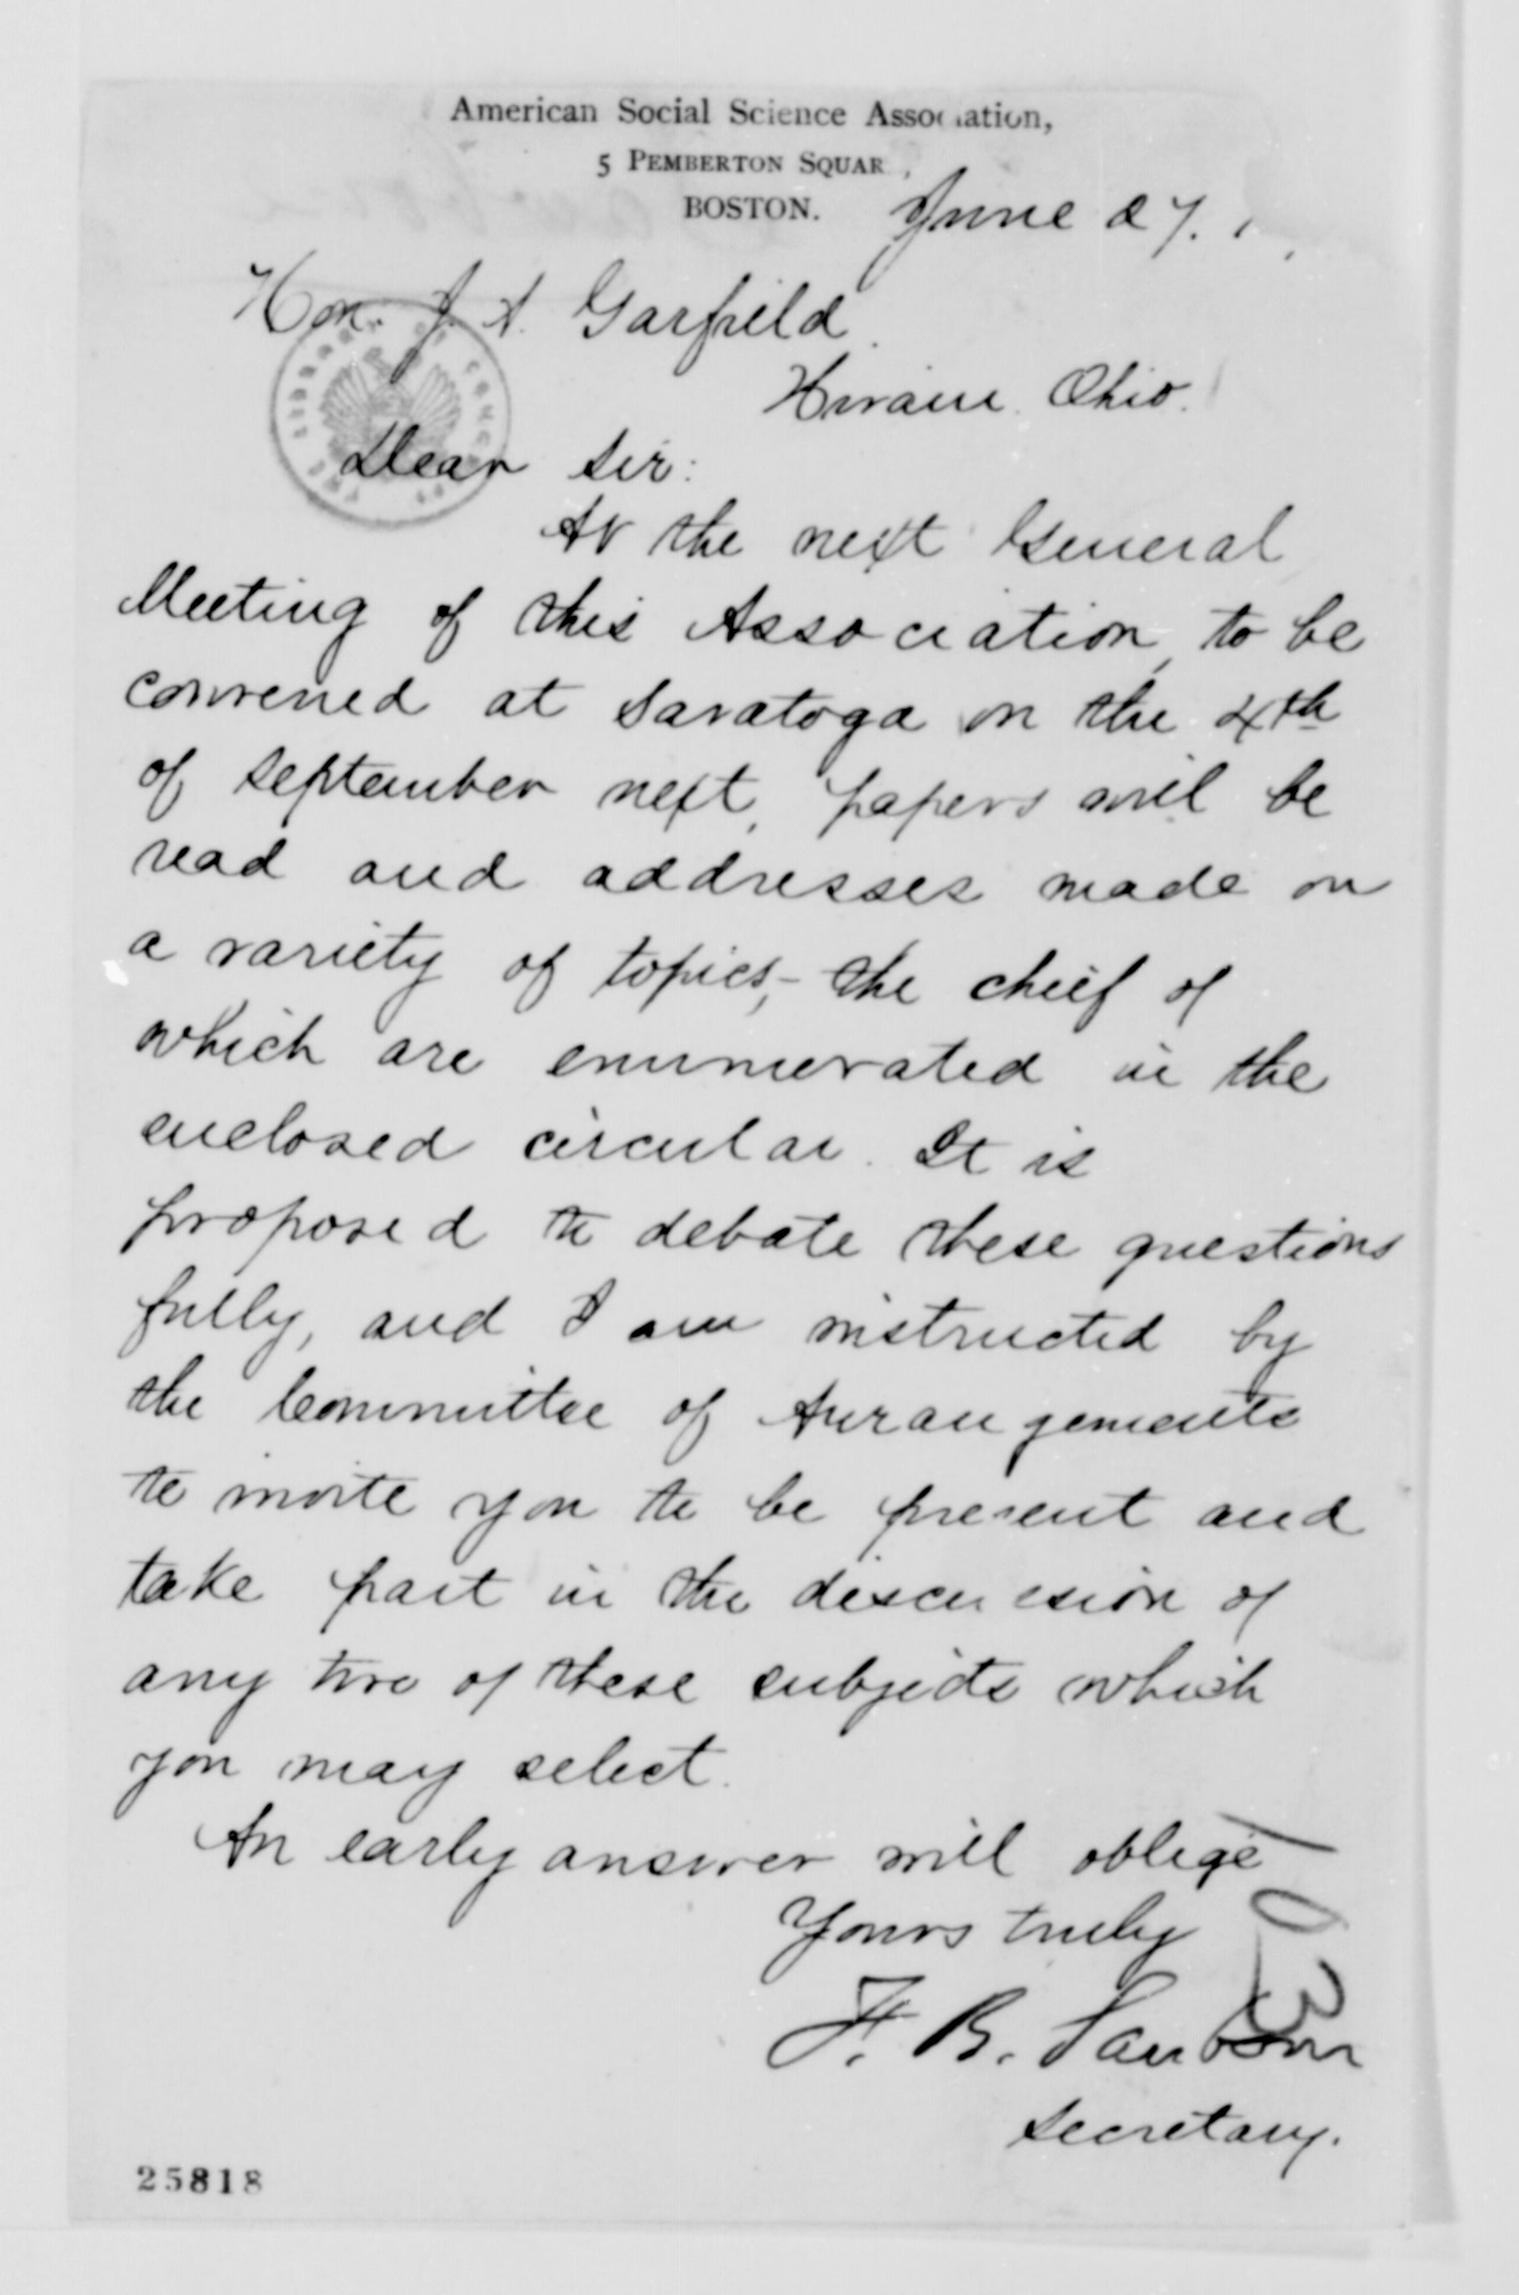 American Social Science Association,
5 PEMBERTON SQUAR ,
BOSTON. June 27.
Hon. J. A. Garfield
Hiram Ohio.
Dear Sir:
At the next General
Meeting of this Association, to be
convened at Saratoga on the 4th
of September next, papers will be
read and addresses made on
a variety of topics,- the chief of
which are enumerated in the
enclosed circular. It is
proposed to debate these questions
fully, and I am instructed by
the Committee of Arrangements
to invite you to be present and
take part in the discussion of
any two of these subjects which
you may select.
An early answer will oblige
Yours truly
F. B. Sanborn
Secretary.
25818